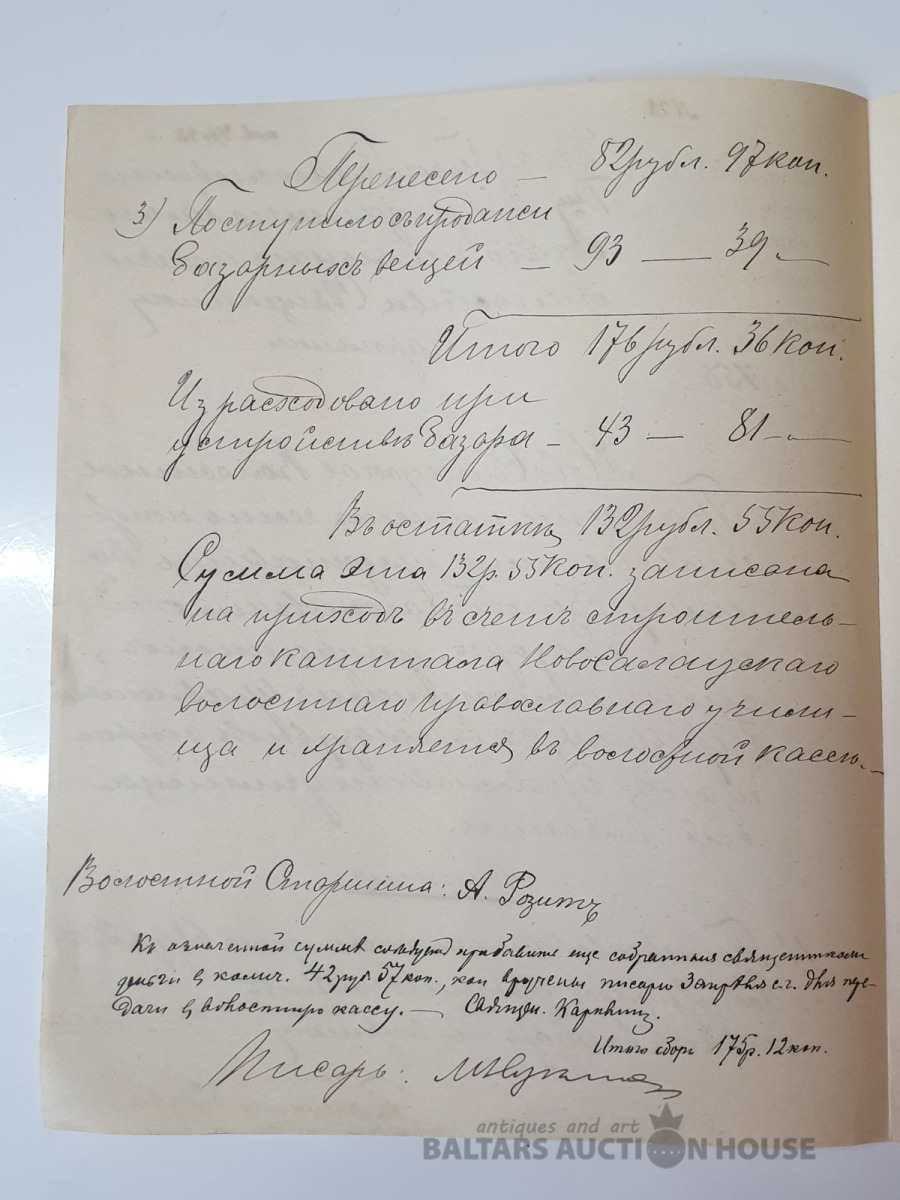 Перенесено — 82 рубл. 97 коп.
3) Поступило съ продажи
базарныхъ вещей — 93 — 39 —
Итого 176 рубл. 36 коп.
Израсходовано при
устройствѣ базара — 43 — 81 —
Въ остаткѣ 132 рубл. 55 коп.
Сумма эта 132 р. 55 коп. записана
на приходъ въ счетъ строитель-
наго капитала Новосалацкаго
волостнаго православнаго учили-
ща и хранятся въ волостной кассѣ.
Волостной Старшина: А. Розитъ
Къ означенной суммѣ слѣдуетъ прибавить еще собранныя священникомъ
деньги въ колич. 42 руб. 57 коп., кои вручены писарю 3 апрѣля с. г. для пере-
дачи въ волостную кассу. — Священ. Карклинъ.
Итого сборъ 175 р. 12 коп.
Писарь:
antiques and art
BALTARS AUCTION HOUSE